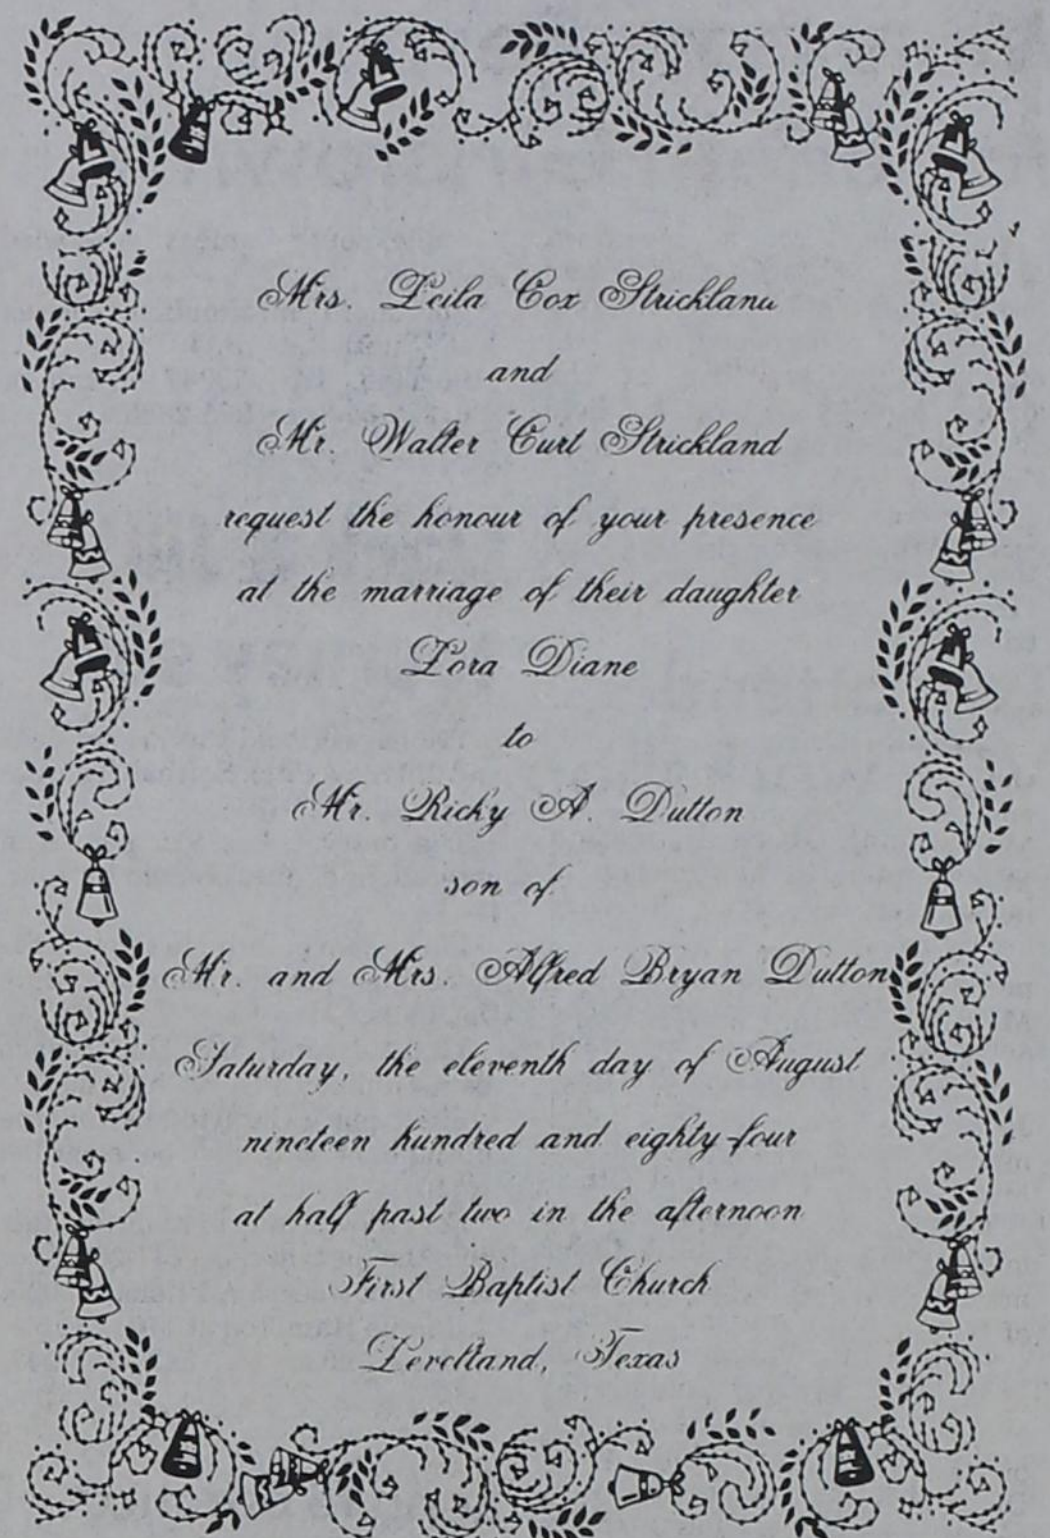 Mrs. Leila Cox Strickland
and
Mr. Walter Curt Strickland
request the honour of your presence
at the marriage of their daughter
Lora Diane
to
Mr. Ricky A. Dutton
son of
Mr. and Mrs. Alfred Bryan Dutton
Saturday, the eleventh day of August
nineteen hundred and eighty-four
at half past two in the afternoon
First Baptist Church
Levelland, Texas